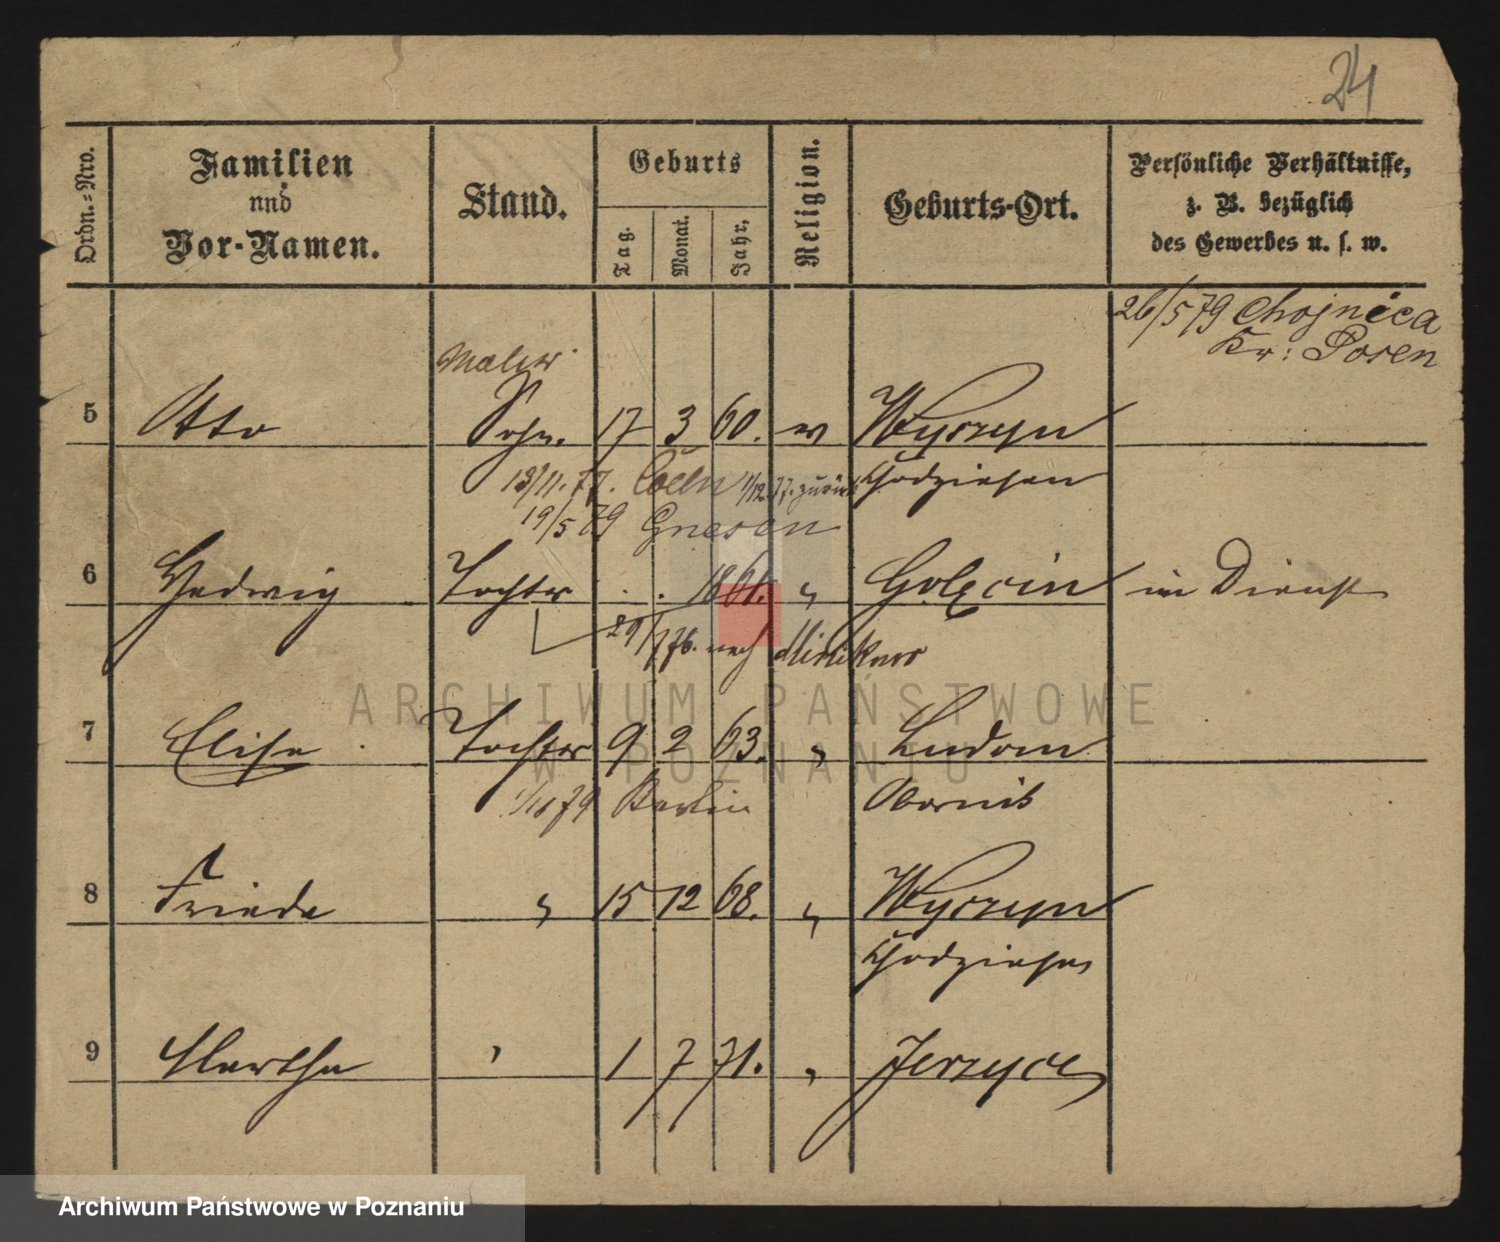 24
Ordn.-Nro.
Familien
und
Vor-Namen.
Stand.
Geburts
Tag.
Monat.
Jahr,
Religion.
Geburts-Ort.
Persönliche Verhältnisse,
z. B. bezüglich
des Gewerbes u. s. w.
26/5 79 Chojnica
Kr: Posen
Maler
5 Otto Sohn. 17 3 60. ev Wyszyn
13/11. 77. Coeln 1/12 77. zurück Chodziesen
19/5 79 Gnesen
6 Hedwig Tochter . . 1861. " Golęcin im Dienst
29/7 76. nach
7 Elise Tochter 9 2 63. " Ludom
79 Berlin Obornik
8 Friede " 15 12 68. " Wyszyn
Chodziesen
9 Martha " 1 7 71. " Jerzyce
ARCHIWUM PAŃSTWOWE
W POZNANIU
Archiwum Państwowe w Poznaniu